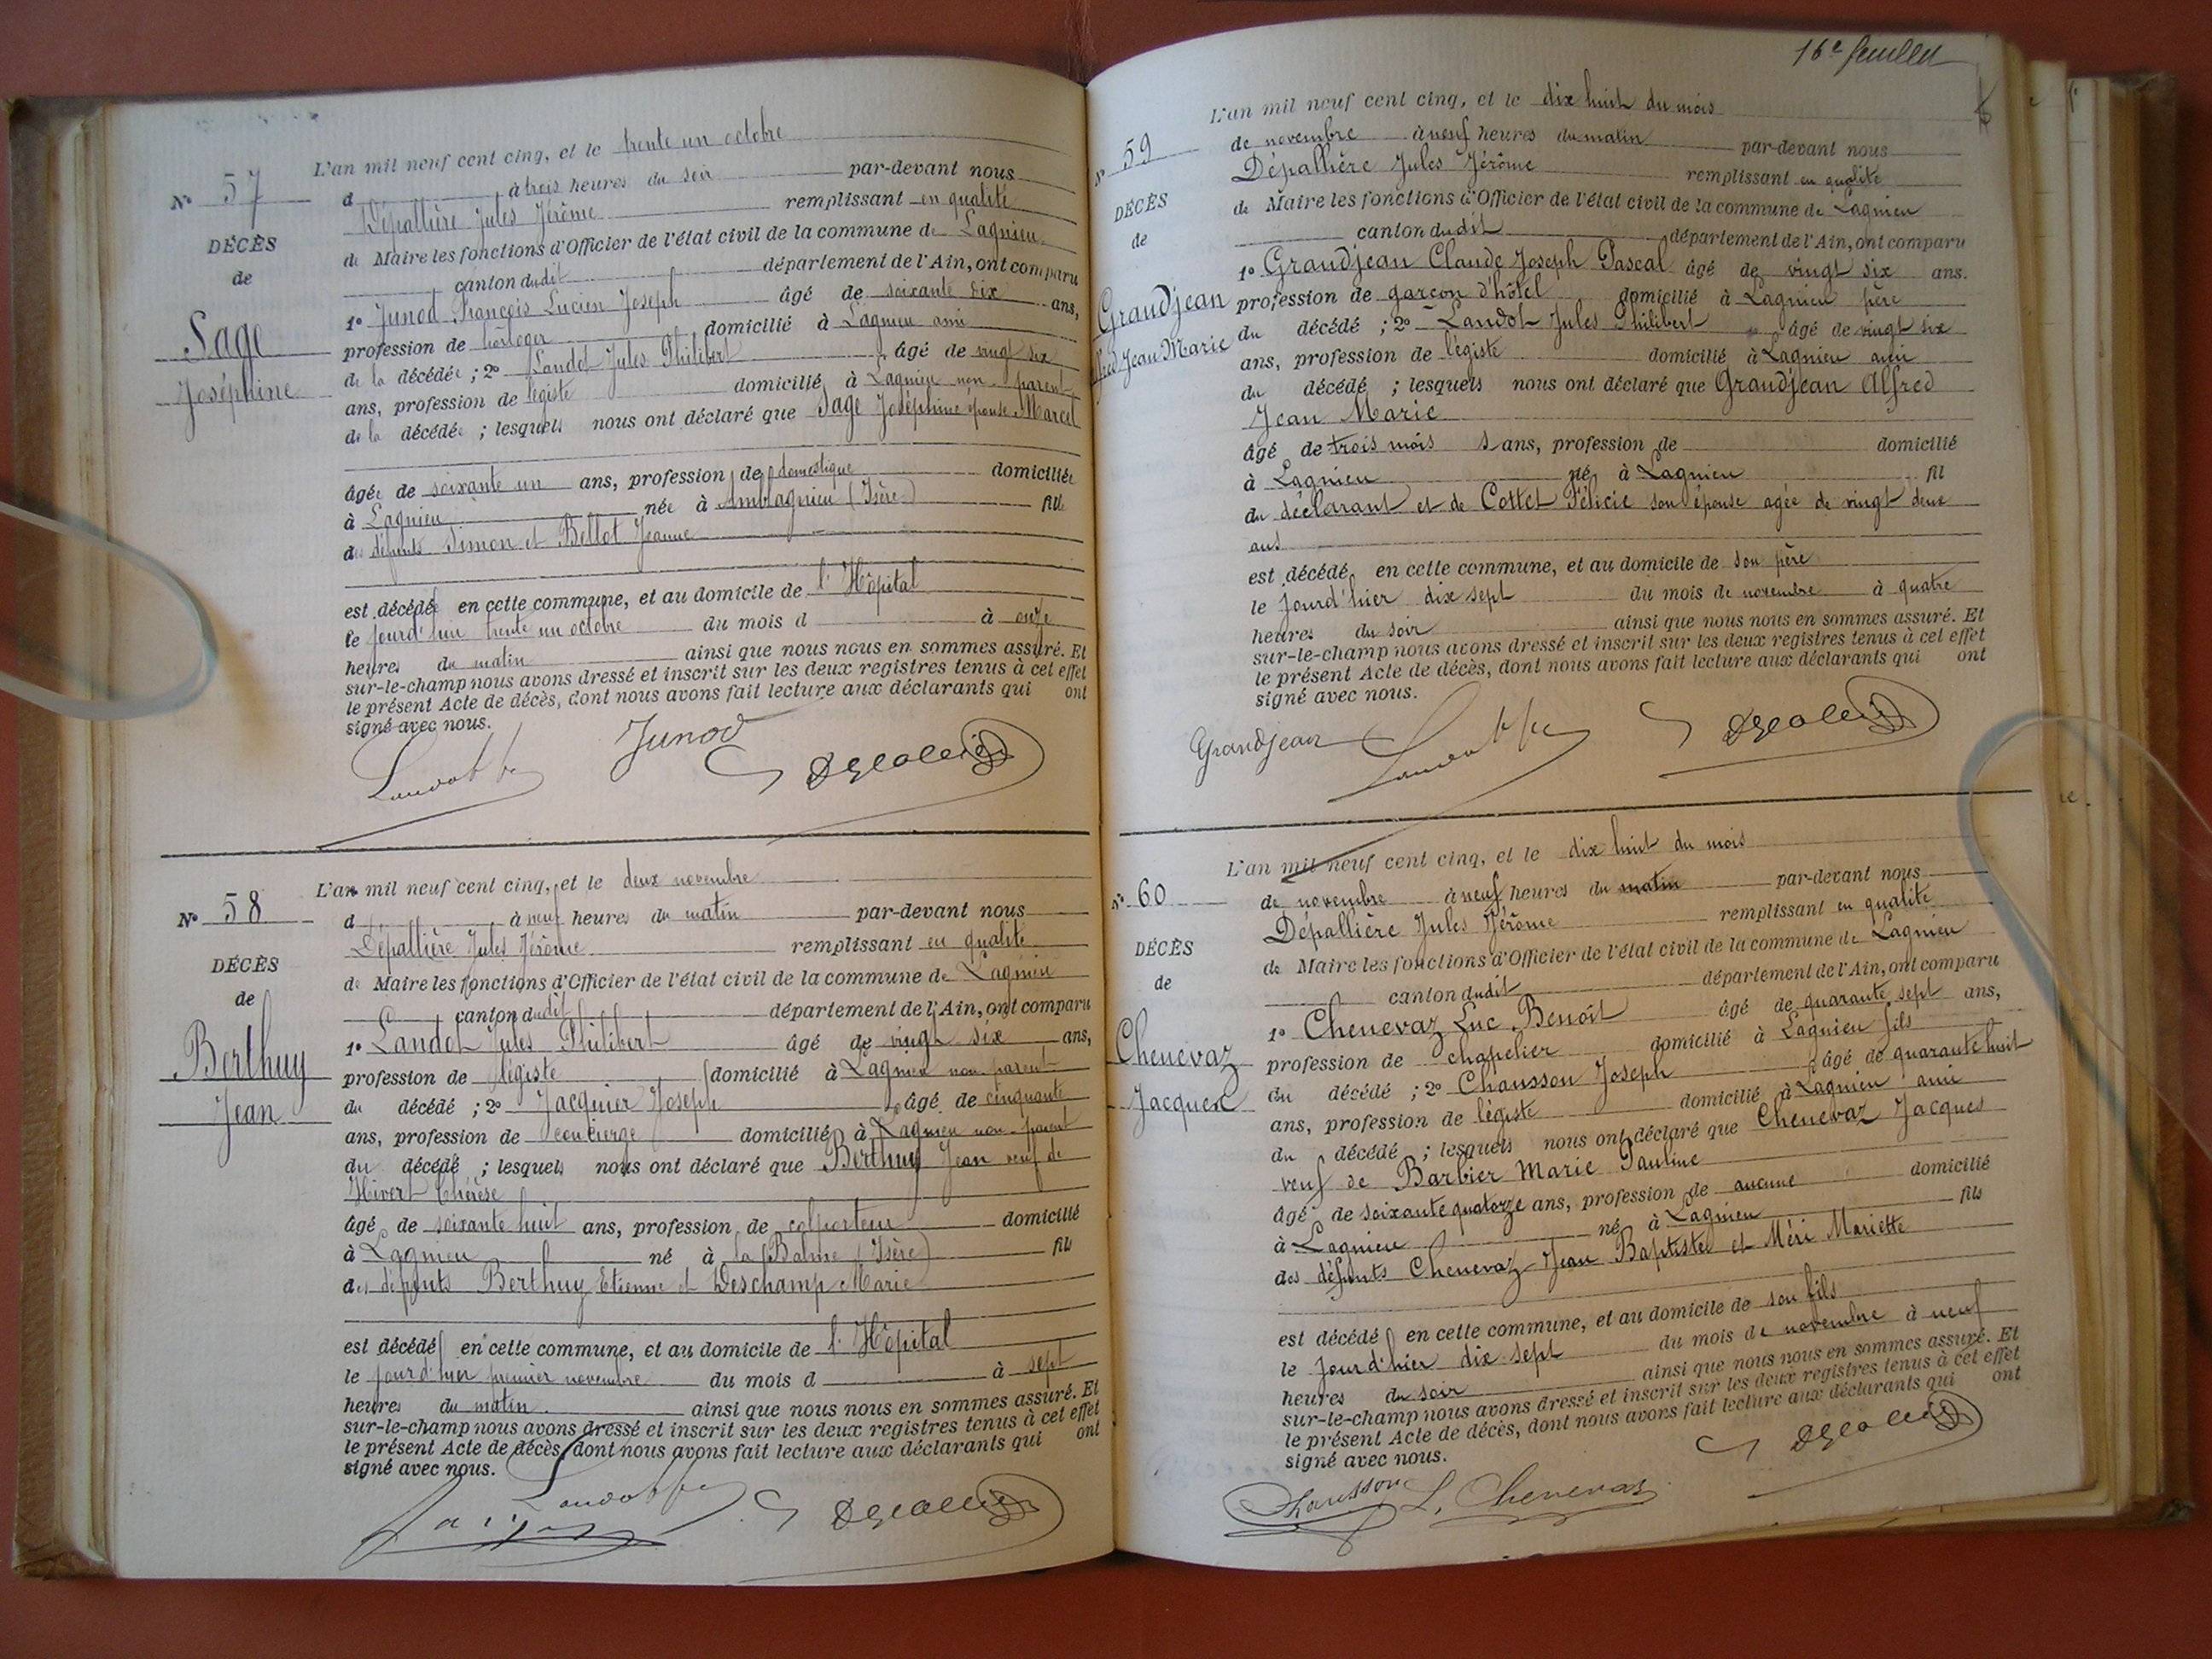 L'an mil neuf cent cinq, et le trente un octobre
N° 57
d à trois heures du soir par-devant nous
Dépallière Jules Jérôme remplissant en qualité
DÉCÈS
de Maire les fonctions d'Officier de l'état civil de la commune de Lagnieu
de
canton dudit département de l'Ain, ont comparu
1° Junod François Lucien Joseph âgé de soixante dix ans,
Sage
profession de horloger domicilié à Lagnieu ami
de la décédée ; 2° Landot Jules Philibert âgé de vingt six
Joséphine
ans, profession de légiste domicilié à Lagnieu non parent
de la décédée ; lesquels nous ont déclaré que Sage Joséphine épouse Marcel
âgée de soixante un ans, profession de domestique domiciliée
à Lagnieu née à Amblagnieu (Isère) fille
des défunts Simon et Bellot Jeanne
est décédée en cette commune, et au domicile de l'Hôpital
le jourd'hui trente un octobre du mois d à onze
heures du matin ainsi que nous nous en sommes assuré. Et
sur-le-champ nous avons dressé et inscrit sur les deux registres tenus à cet effet
le présent Acte de décès, dont nous avons fait lecture aux déclarants qui ont
signé avec nous.
Junod
L'an mil neuf cent cinq, et le deux novembre
N° 58
d à neuf heures du matin par-devant nous
Dépallière Jules Jérôme remplissant en qualité
DÉCÈS
de Maire les fonctions d'Officier de l'état civil de la commune de Lagnieu
de
canton dudit département de l'Ain, ont comparu
1° Landot Jules Philibert âgé de vingt six ans,
Berthuy
profession de légiste domicilié à Lagnieu non parent
du décédé ; 2° Jacquier Joseph âgé de cinquante
Jean
ans, profession de concierge domicilié à Lagnieu non parent
du décédé ; lesquels nous ont déclaré que Berthuy Jean veuf de
Hivert Thérèse
âgé de soixante huit ans, profession de colporteur domicilié
à Lagnieu né à la Balme (Isère) fils
des défunts Berthuy Etienne et Deschamp Marie
est décédé en cette commune, et au domicile de l'Hôpital
le jourd'hier premier novembre du mois d à sept
heures du matin ainsi que nous nous en sommes assuré. Et
sur-le-champ nous avons dressé et inscrit sur les deux registres tenus à cet effet
le présent Acte de décès, dont nous avons fait lecture aux déclarants qui ont
signé avec nous.
16e feuillet
L'an mil neuf cent cinq, et le dix huit du mois
N° 59
de novembre à neuf heures du matin par-devant nous
Dépallière Jules Jérôme remplissant en qualité
DÉCÈS
de Maire les fonctions d'Officier de l'état civil de la commune de Lagnieu
de
canton dudit département de l'Ain, ont comparu
1° Grandjean Claude Joseph Pascal âgé de vingt six ans.
Grandjean
profession de garçon d'hôtel domicilié à Lagnieu père
du décédé ; 2° Landot Jules Philibert âgé de vingt six
Alfred Jean Marie
ans, profession de légiste domicilié à Lagnieu ami
du décédé ; lesquels nous ont déclaré que Grandjean Alfred
Jean Marie
âgé de trois mois s ans, profession de domicilié
à Lagnieu né à Lagnieu fil
du déclarant et de Cottet Félicie son épouse agée de vingt deux
ans
est décédé en cette commune, et au domicile de son père
le jourd'hier dix sept du mois de novembre à quatre
heures du soir ainsi que nous nous en sommes assuré. Et
sur-le-champ nous avons dressé et inscrit sur les deux registres tenus à cet effet
le présent Acte de décès, dont nous avons fait lecture aux déclarants qui ont
signé avec nous.
Grandjean
L'an mil neuf cent cinq, et le dix huit du mois
N° 60
de novembre à neuf heures du matin par-devant nous
Dépallière Jules Jérôme remplissant en qualité
DÉCÈS
de Maire les fonctions d'Officier de l'état civil de la commune de Lagnieu
de
canton dudit département de l'Ain, ont comparu
1° Chenevaz Luc Benoît âgé de quarante sept ans,
Chenevaz
profession de chapelier domicilié à Lagnieu fils
du décédé ; 2° Chausson Joseph âgé de quarante huit
Jacques
ans, profession de légiste domicilié à Lagnieu ami
du décédé ; lesquels nous ont déclaré que Chenevaz Jacques
veuf de Barbier Marie Pauline
âgé de soixante quatorze ans, profession de aucune domicilié
à Lagnieu né à Lagnieu fils
des défunts Chenevaz Jean Baptiste et Méri Mariette
est décédé en cette commune, et au domicile de son fils
le jourd'hier dix sept du mois de novembre à neuf
heures du soir ainsi que nous nous en sommes assuré. Et
sur-le-champ nous avons dressé et inscrit sur les deux registres tenus à cet effet
le présent Acte de décès, dont nous avons fait lecture aux déclarants qui ont
signé avec nous.
Chausson L. Chenevaz